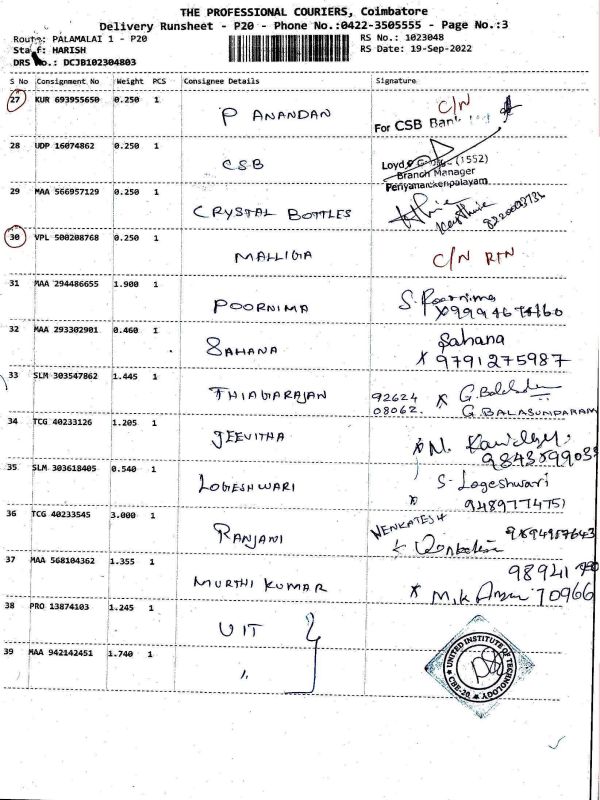 THE PROFESSIONAL COURIERS, Coimbatore
Delivery Runsheet - P20 - Phone No.:0422-3505555 - Page No.:3
Route: PALAMALAI 1 - P20
RS No.: 1023048
Staff: HARISH
RS Date: 19-Sep-2022
DRS No.: DCJB102304803
S No Consignment No Weight PCS Consignee Details Signature
27 KUR 693955650 0.250 1 P ANANDAN C/N
For CSB Bank Ltd
28 UDP 16074862 0.250 1 CSB
Loyd (1552)
Branch Manager
Periyanaickenpalayam
29 MAA 566957129 0.250 1 CRYSTAL BOTTLES
30 VPL 500208768 0.250 1 MALLIGA C/N RTN
31 MAA 294486655 1.900 1 POORNIMA S. Poornima
32 MAA 293302901 0.460 1 SAHANA Sahana
x 9791275987
33 SLM 303547862 1.445 1 THIAGARAJAN 92624 x G. Bala
08062. G. BALASUNDARAM
34 TCG 40233126 1.205 1 JEEVITHA
35 SLM 303618405 0.540 1 LOGESHWARI S. Logeshwari
9489774751
36 TCG 40233545 3.000 1 RANJANI VENKATESH
37 MAA 568104362 1.355 1 MURTHI KUMAR
70966
38 PRO 13874103 1.245 1 UIT
39 MAA 942142451 1.740 1 "
UNITED INSTITUTE OF TECHNOLOGY
CBE-20